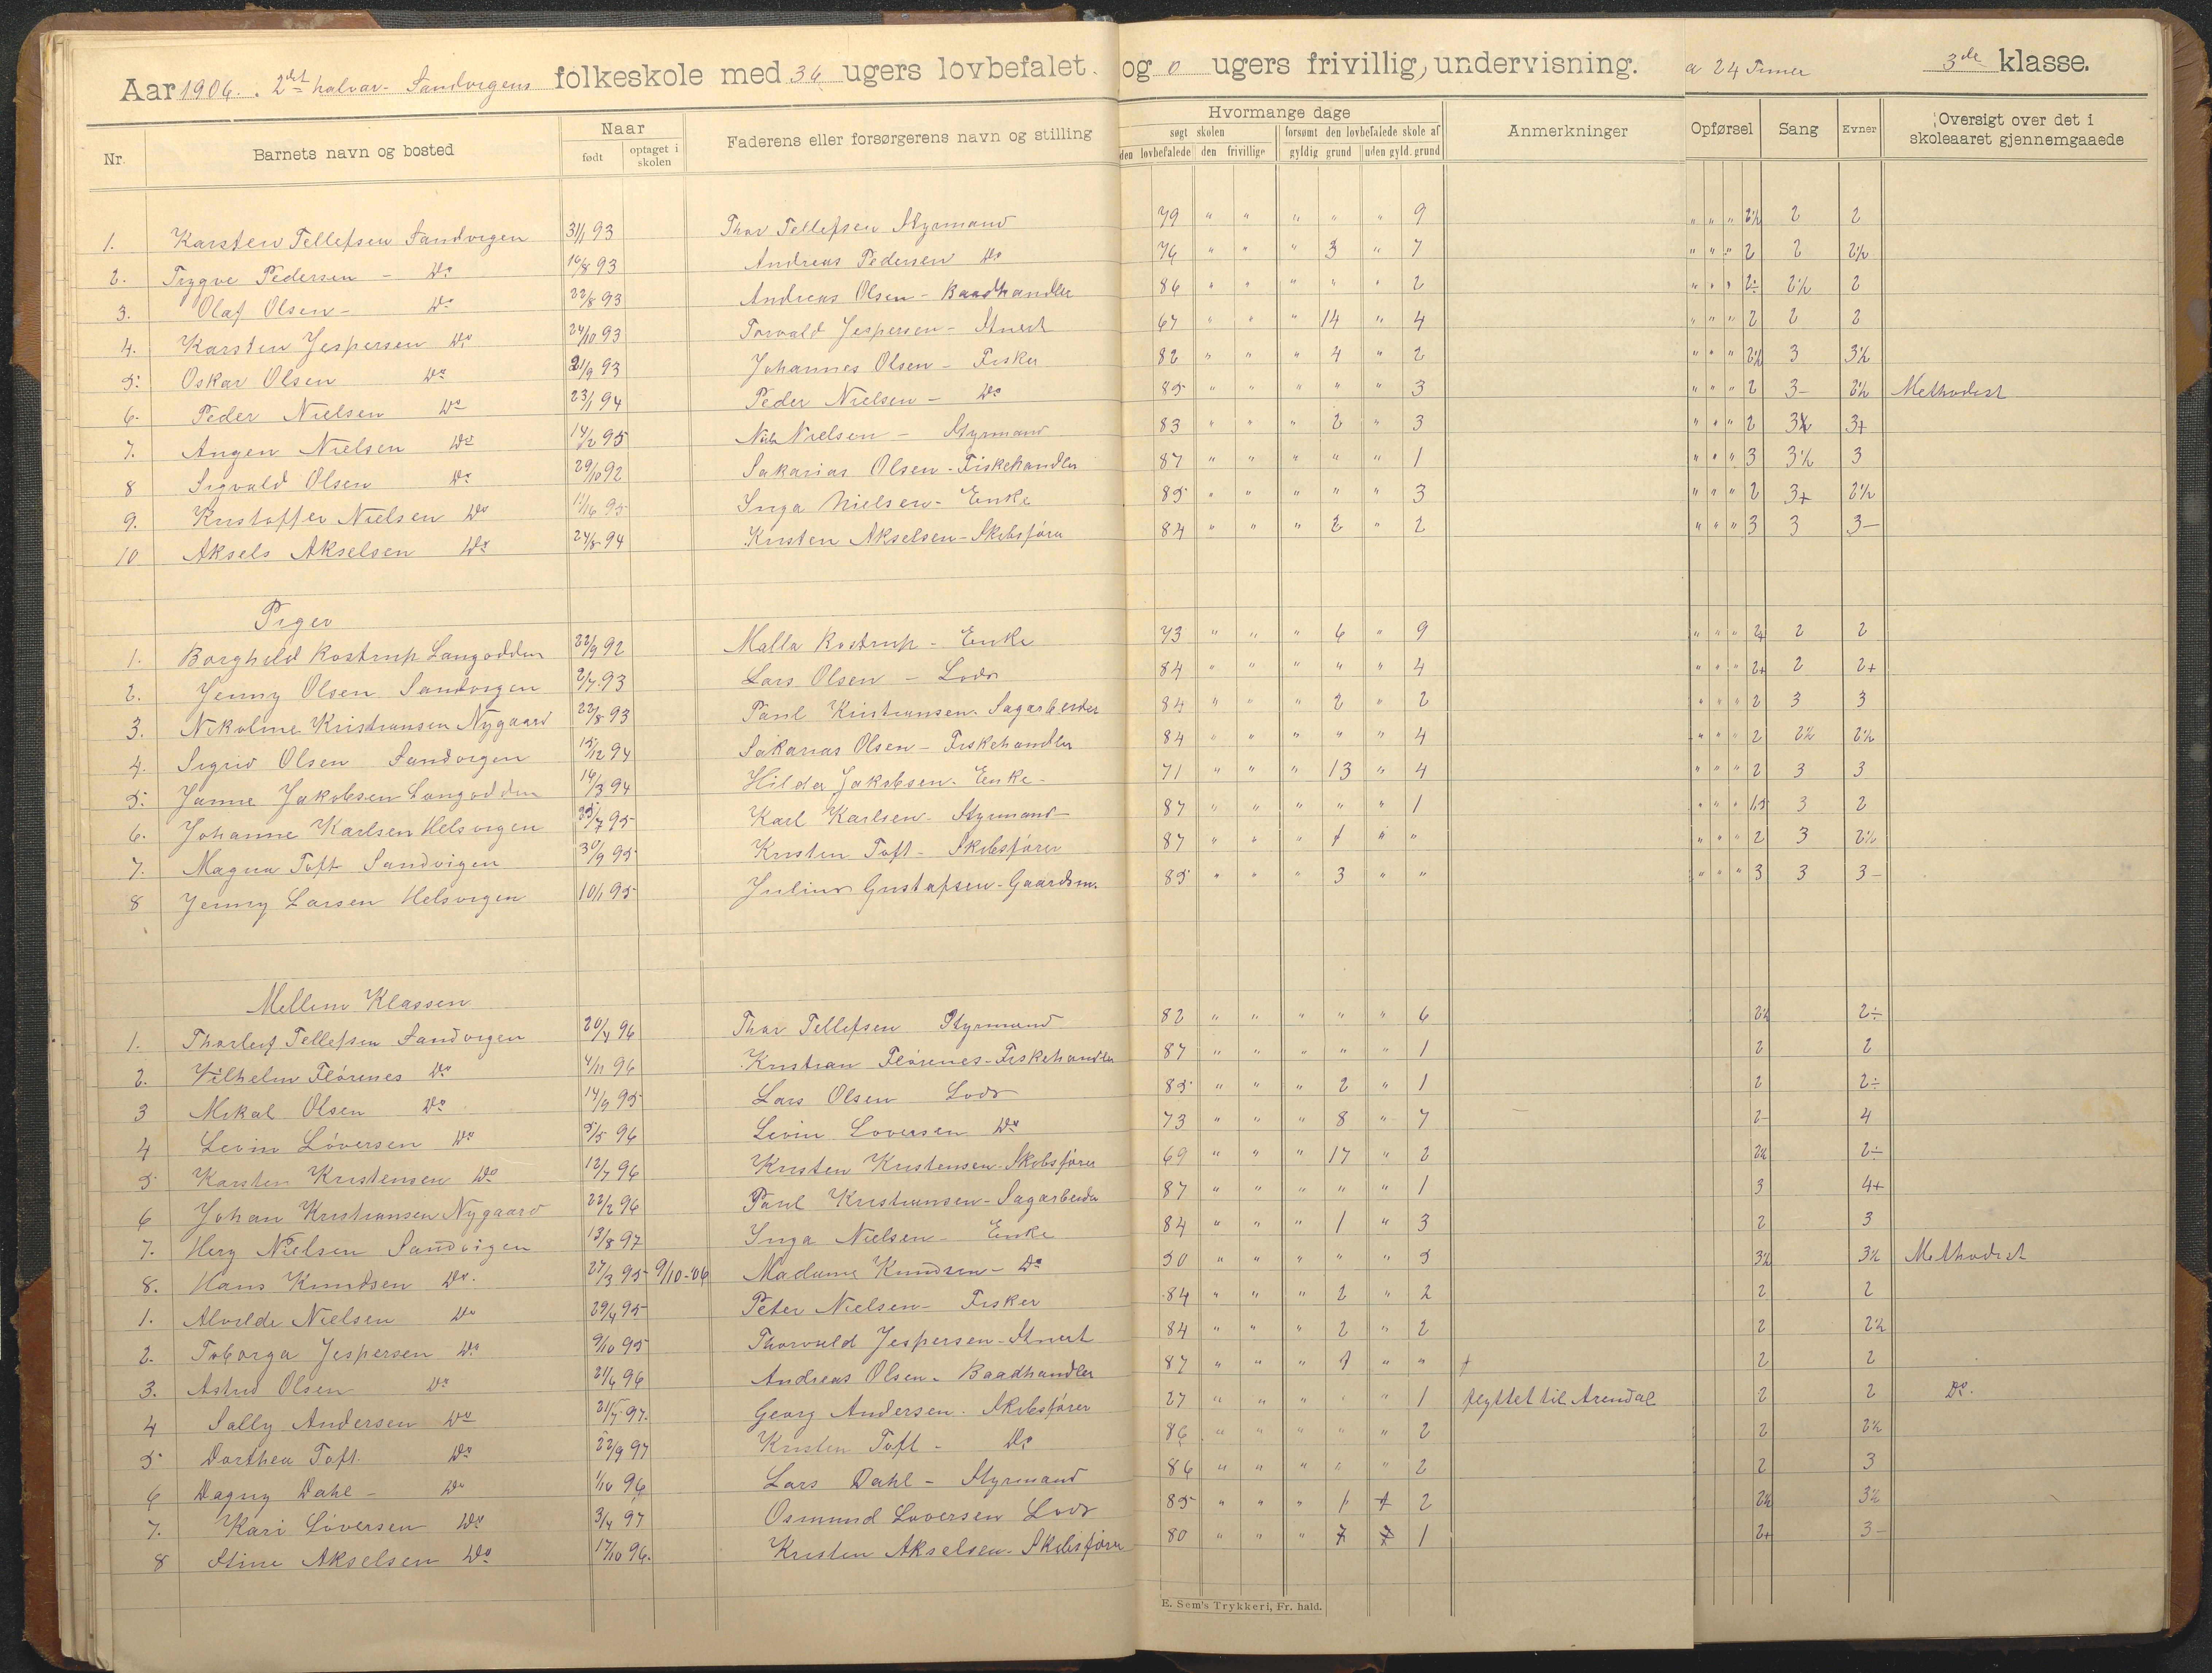 Aar 1906. 2det halvaar. Sandvigens folkeskole med 36 ugers lovbefalet og 0 ugers frivillig, undervisning. a 24 Timer 3de klasse.
Nr. Barnets navn og bosted Naar født optaget i skolen Faderens eller forsørgerens navn og stilling Hvormange dage søgt skolen den lovbefalede den frivillige forsømt den lovbefalede skole af gyldig grund uden gyld. grund Anmerkninger Opførsel Sang Evner Oversigt over det i skoleaaret gjennemgaaede
1. Karsten Tellefsen Sandvigen 31/1 93 Thor Tellefsen Styrmand 79 " " " " " 9 " " " 2½ 2 2
2. Trygve Pedersen - Do 16/8 93 Andreas Pedersen Do 76 " " " 3 " 7 " " " 2 2 2½
3. Olaf Olsen - Do 22/8 93 Andreas Olsen - Baadhandler 86 " " " " " 2 " " " 2÷ 2½ 2
4. Karsten Jespersen Do 24/10 93 Torvald Jespersen - Stuert 67 " " " 14 " 4 " " " 2 2 2
5. Oskar Olsen Do 21/9 93 Johannes Olsen - Fisker 82 " " " 4 " 2 " " " 2½ 3 3½
6. Peder Nielsen Do 23/1 94 Peder Nielsen - Do 85 " " " " " 3 " " " 2 3- 2½ Methodist
7. Angen Nielsen Do 14/2 95 Nils Nielsen - Styrmand 83 " " " 2 " 3 " " " 2 3½ 3+
8 Sigvald Olsen Do 29/10 92 Sakarias Olsen - Fiskehandler 87 " " " " " 1 " " " 3 3½ 3
9. Kristoffer Nielsen Do 11/16 95 Inga Nielsen - Enke 85 " " " " " 3 " " " 2 3+ 2½
10 Aksels Akselsen Do 24/5 94 Kristen Akselsen - Skibsfører 84 " " " 2 " 2 " " " 3 3 3-
Piger
1. Borghild Rostrup Langodden 22/9 92 Malla Rostrup - Enke 73 " " " 6 " 9 " " " 2+ 2 2
2. Jenny Olsen Sandvigen 2/7 93 Lars Olsen - Lods 84 " " " " " 4 " " " 2+ 2 2+
3. Nikoline Kristiansen Nygaard 22/8 93 Paul Kristiansen. Sagarbeider 84 " " " 2 " 2 " " " 2 3 3
4. Sigrid Olsen Sandvigen 15/12 94 Sakarias Olsen - Fiskehandler 84 " " " " " 4 " " " 2 2½ 2½
5. Janna Jakobsen Langodden 14/3 94 Hilda Jakobsen - Enke - 71 " " " 13 " 4 " " " 2 3 3
6. Johanne Karlsen Helsvigen 25/7 95 Karl Karlsen - Styrmand 87 " " " " " 1 " " " 1,5 3 2
7. Magna Toft Sandvigen 30/9 95 Kristen Toft - Skibsfører 87 " " " 1 " " " " " 2 3 2½
8 Jenny Larsen Helsvigen 10/1 95 Julius Gustafsen - Gaardsm. 85 " " " 3 " " " " " 3 3 3-
Mellem Klassen
1. Thorleif Tellefsen Sandvigen 20/4 96 Thor Tellefsen Styrmand 82 " " " " " 6 2½ 2÷
2. Vilhelm Flörenes Do 4/11 96 Kristian Flörenes - Fiskehandler 87 " " " " " 1 2 2
3 Mikal Olsen Do 14/9 95 Lars Olsen Lods 85 " " " 2 " 1 2 2÷
4 Levin Löversen Do 5/5 96 Levin Loversen Do 73 " " " 8 " 7 2- 4
5 Karsten Kristensen Do 12/7 96 Kristen Kristensen - Skibsfører 69 " " " 17 " 2 2½ 2÷
6 Johan Kristiansen Nygaard 22/2 96 Paul Kristiansen - Sagarbeider 87 " " " " " 1 3 4+
7. Herg Nielsen Sandvigen 13/8 97 Inga Nielsen - Enke 84 " " " 1 " 3 2 3
8. Hans Knudsen Do. 27/3 95 9/10-06 Madame Knudsen - Do 50 " " " " " 5 3½ 3½ Methodist
1. Alvilde Nielsen Do 29/4 95 Peter Nielsen - Fisker 84 " " " 2 " 2 2 2
2. Toborga Jespersen Do 9/10 95 Thorvald Jespersen - Stuert 84 " " " 2 " 2 2 2½
3. Astrid Olsen Do 21/6 96 Andreas Olsen - Baadhandler 87 " " " 1 " " 2 2
4 Sally Andersen Do 21/7 97. Georg Andersen. Skibsfører 27 " " " " " 1 flyttet til Arendal 2 2 Do.
5 Dorthea Toft. Do 22/9 97 Kristen Toft - Do 86 " " " " " 2 2 2½
6 Dagny Dahl - Do 1/10 96 Lars Dahl - Styrmand 86 " " " " " 2 2 3
7. Kari Löversen Do 3/4 97 Osmund Loversen Lods 85 " " " 1 1 2 2½ 3½
8 Stine Akselsen Do 17/10 96. Kristen Akselsen - Skibsfører 80 " " " 7 7 1 2+ 3-
E. Sem's Trykkeri, Fr. hald.